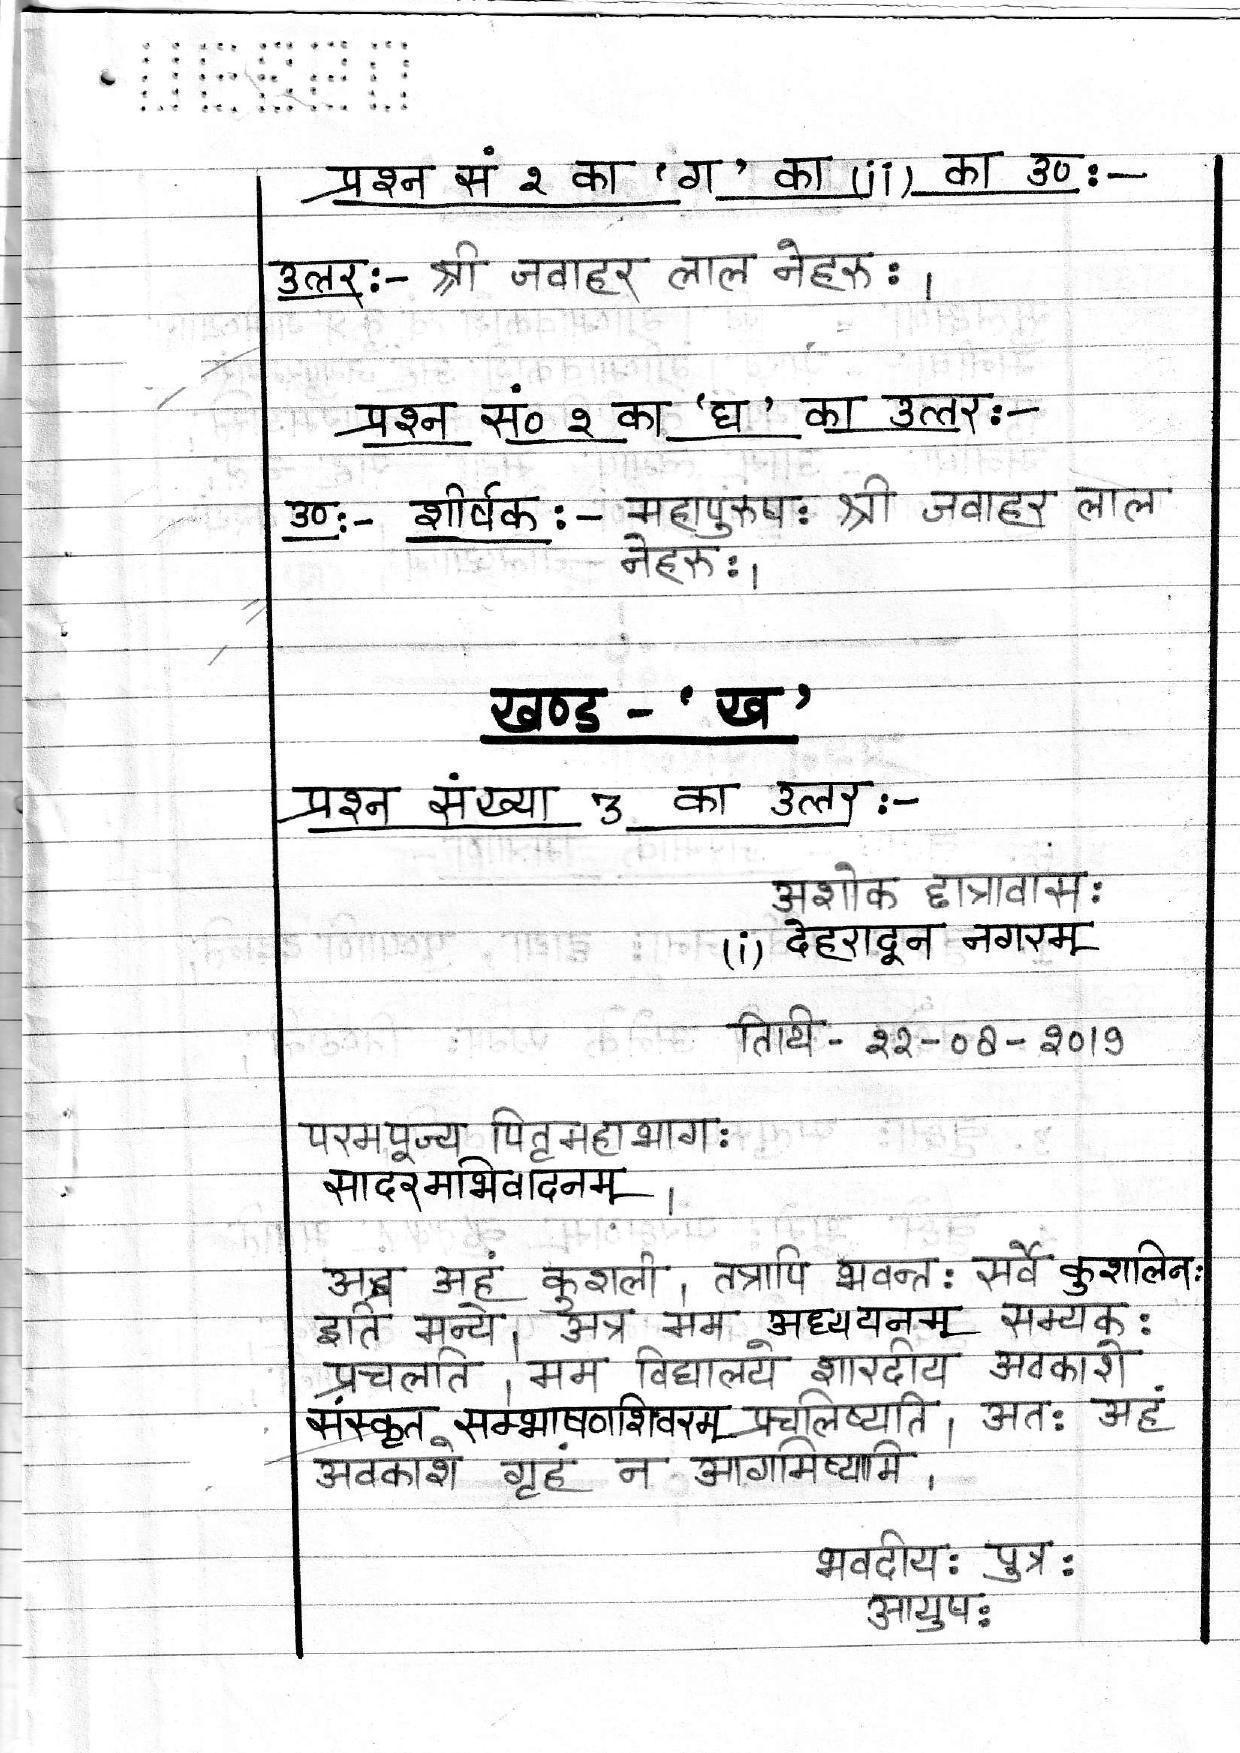 प्रश्न सं २ का 'ग' का (ii) का उ०:-
उत्तर:- श्री जवाहर लाल नेहरू: ।
प्रश्न सं० २ का 'घ' का उत्तर:-
उ०:- शीर्षक:- महापुरुष: श्री जवाहर लाल
नेहरू: ।
खण्ड - 'ख'
प्रश्न संख्या 3 का उत्तर:-
अशोक छात्रावास:
(i) देहरादून नगरम्
तिथि - २२-०8-२०19
परमपूज्य पितृमहाभाग:
सादरमभिवादनम् ।
अहं कुशली । तत्रापि भवन्त: सर्वे कुशलिन:
इति मन्ये । अत्र मम अध्ययनम् सम्यक:
प्रचलति । मम विद्यालये शारदीय अवकाशे
संस्कृत सम्भाषणशिवरम् प्रचलिष्यति । अत: अहं
अवकाशे गृहं न आगमिष्यामि ।
भवदीय: पुत्र:
आयुष: